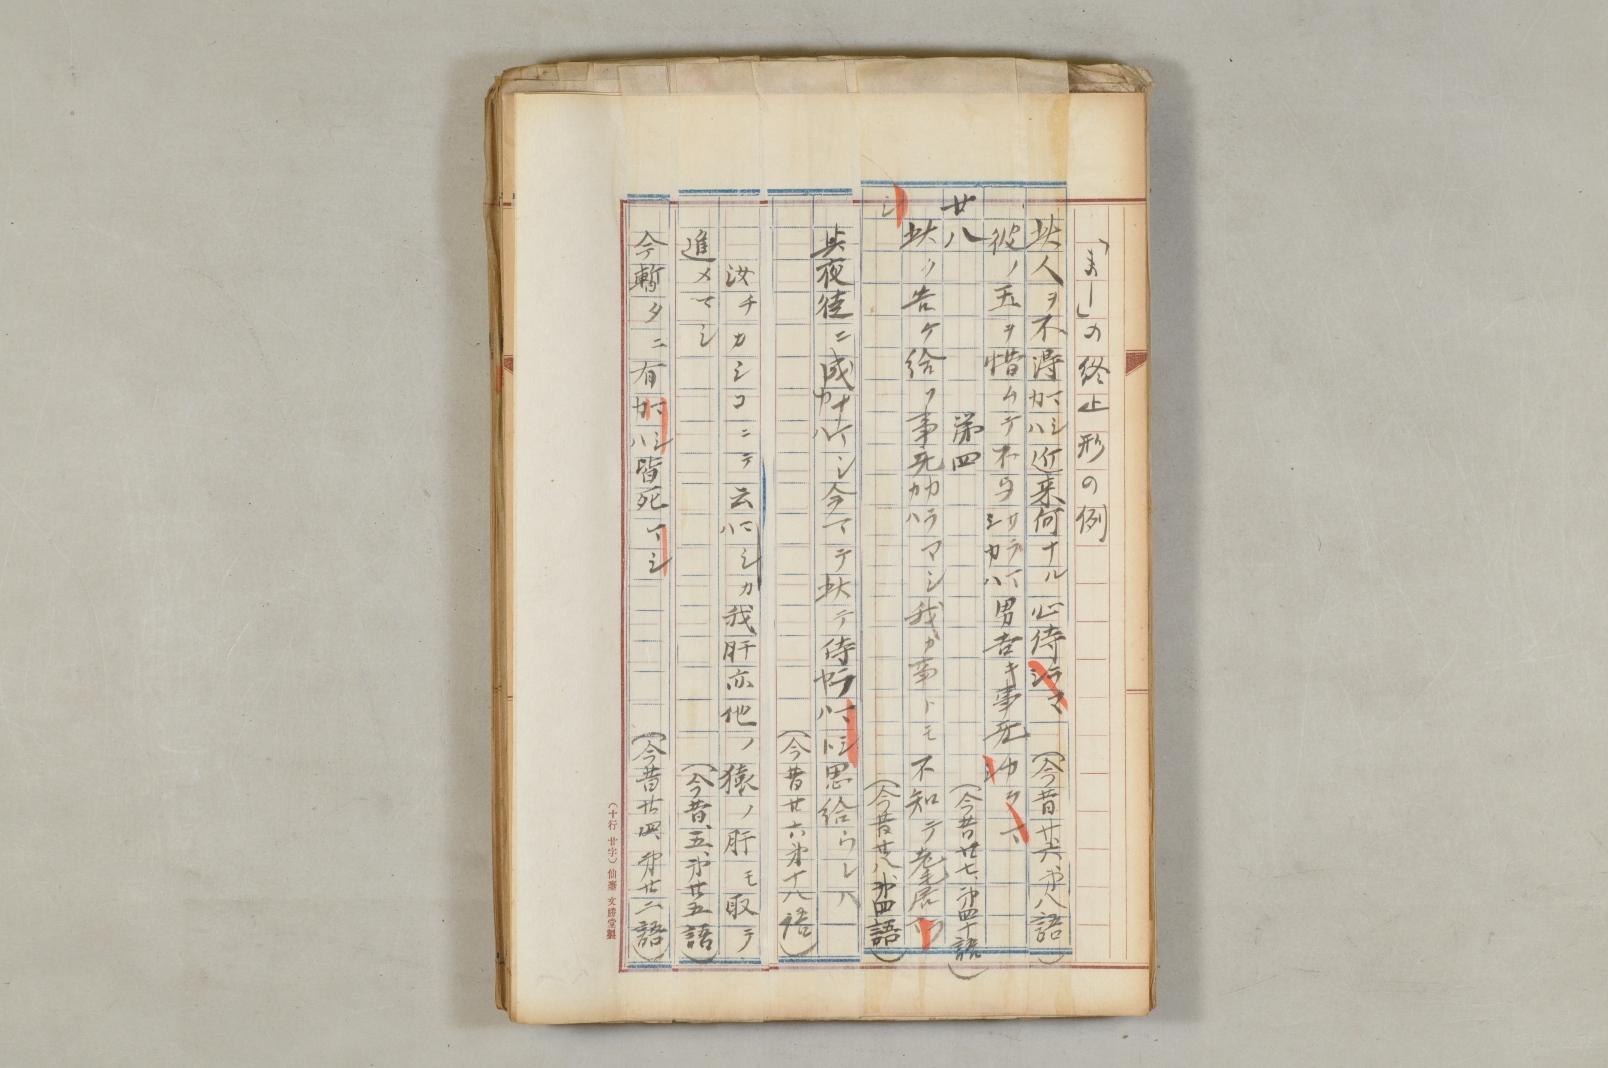 「まし」の終止形の例
此人ヲ不得マシカハ近来何ナル心侍ラマシ（今昔廿六、第八語）
彼ノ玉ヲ惜ムテ不与サラマシカハ男吉キ事死ヤ（今昔廿七、第四十語）
廿八　第四
此ク告ケ給フ事无カラマシカハ我カ事トモ不知テ老居
マシ（今昔廿八、第四語）
其夜徒ニ成ナマシカハ今マテ此テ侍ラマシヤハト思給ウレハ
（今昔廿六第十八語）
汝チカシコニテ云ハマシカハ我肝亦他ノ猿ノ肝モ取テ
進メマシ（今昔、五、第廿五語）
今暫タニ有マシカハ皆死マシ（今昔廿四、第廿二語）
（十行 廿字）仙臺 文勝堂製